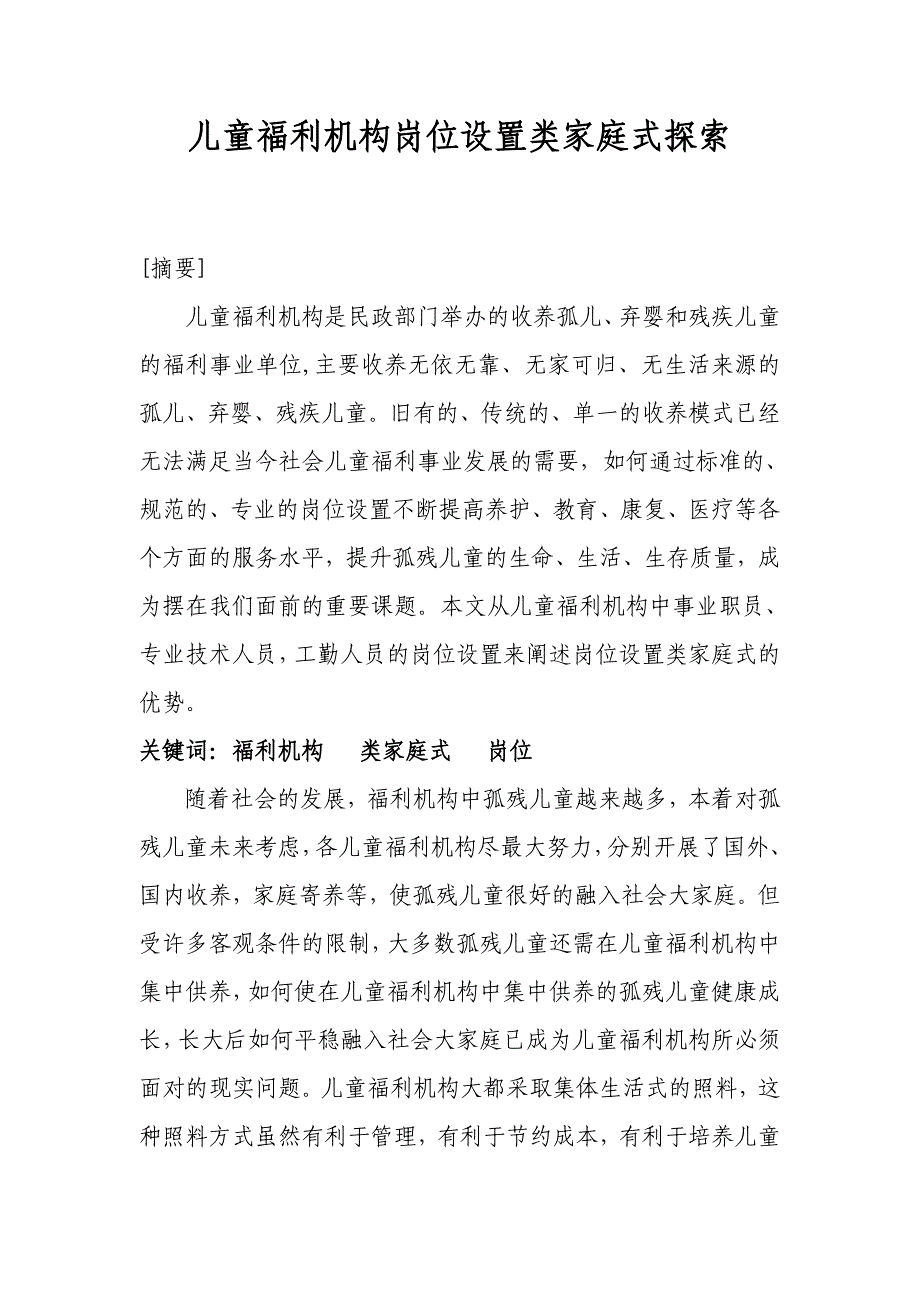 儿童福利机构岗位设置类家庭式探索
[摘要]
儿童福利机构是民政部门举办的收养孤儿、弃婴和残疾儿童
的福利事业单位,主要收养无依无靠、无家可归、无生活来源的
孤儿、弃婴、残疾儿童。旧有的、传统的、单一的收养模式已经
无法满足当今社会儿童福利事业发展的需要，如何通过标准的、
规范的、专业的岗位设置不断提高养护、教育、康复、医疗等各
个方面的服务水平，提升孤残儿童的生命、生活、生存质量，成
为摆在我们面前的重要课题。本文从儿童福利机构中事业职员、
专业技术人员，工勤人员的岗位设置来阐述岗位设置类家庭式的
优势。
关键词：福利机构 类家庭式 岗位
随着社会的发展，福利机构中孤残儿童越来越多，本着对孤
残儿童未来考虑，各儿童福利机构尽最大努力，分别开展了国外、
国内收养，家庭寄养等，使孤残儿童很好的融入社会大家庭。但
受许多客观条件的限制，大多数孤残儿童还需在儿童福利机构中
集中供养，如何使在儿童福利机构中集中供养的孤残儿童健康成
长，长大后如何平稳融入社会大家庭已成为儿童福利机构所必须
面对的现实问题。儿童福利机构大都采取集体生活式的照料，这
种照料方式虽然有利于管理，有利于节约成本，有利于培养儿童